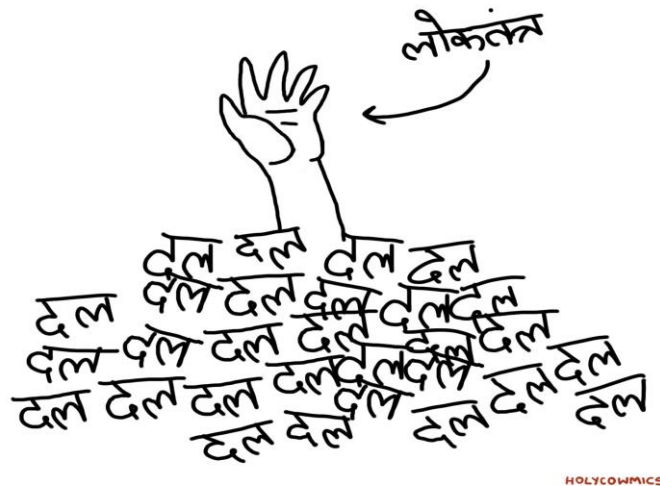 लोकतंत्र
दल दल दल दल
दल दल दल दल दल
दल दल दल दल दल दल
दल दल दल दल दल दल
दल दल दल दल दल दल
दल दल दल
HOLYCOWMICS